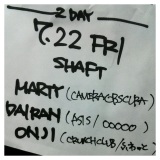 2 DAY
7.22 FRI
SHAFT
MART (CAMERA@BSCUBA)
DAIRAN (ASIS/OOOOO)
ONJI (CRUNCHCLUB/